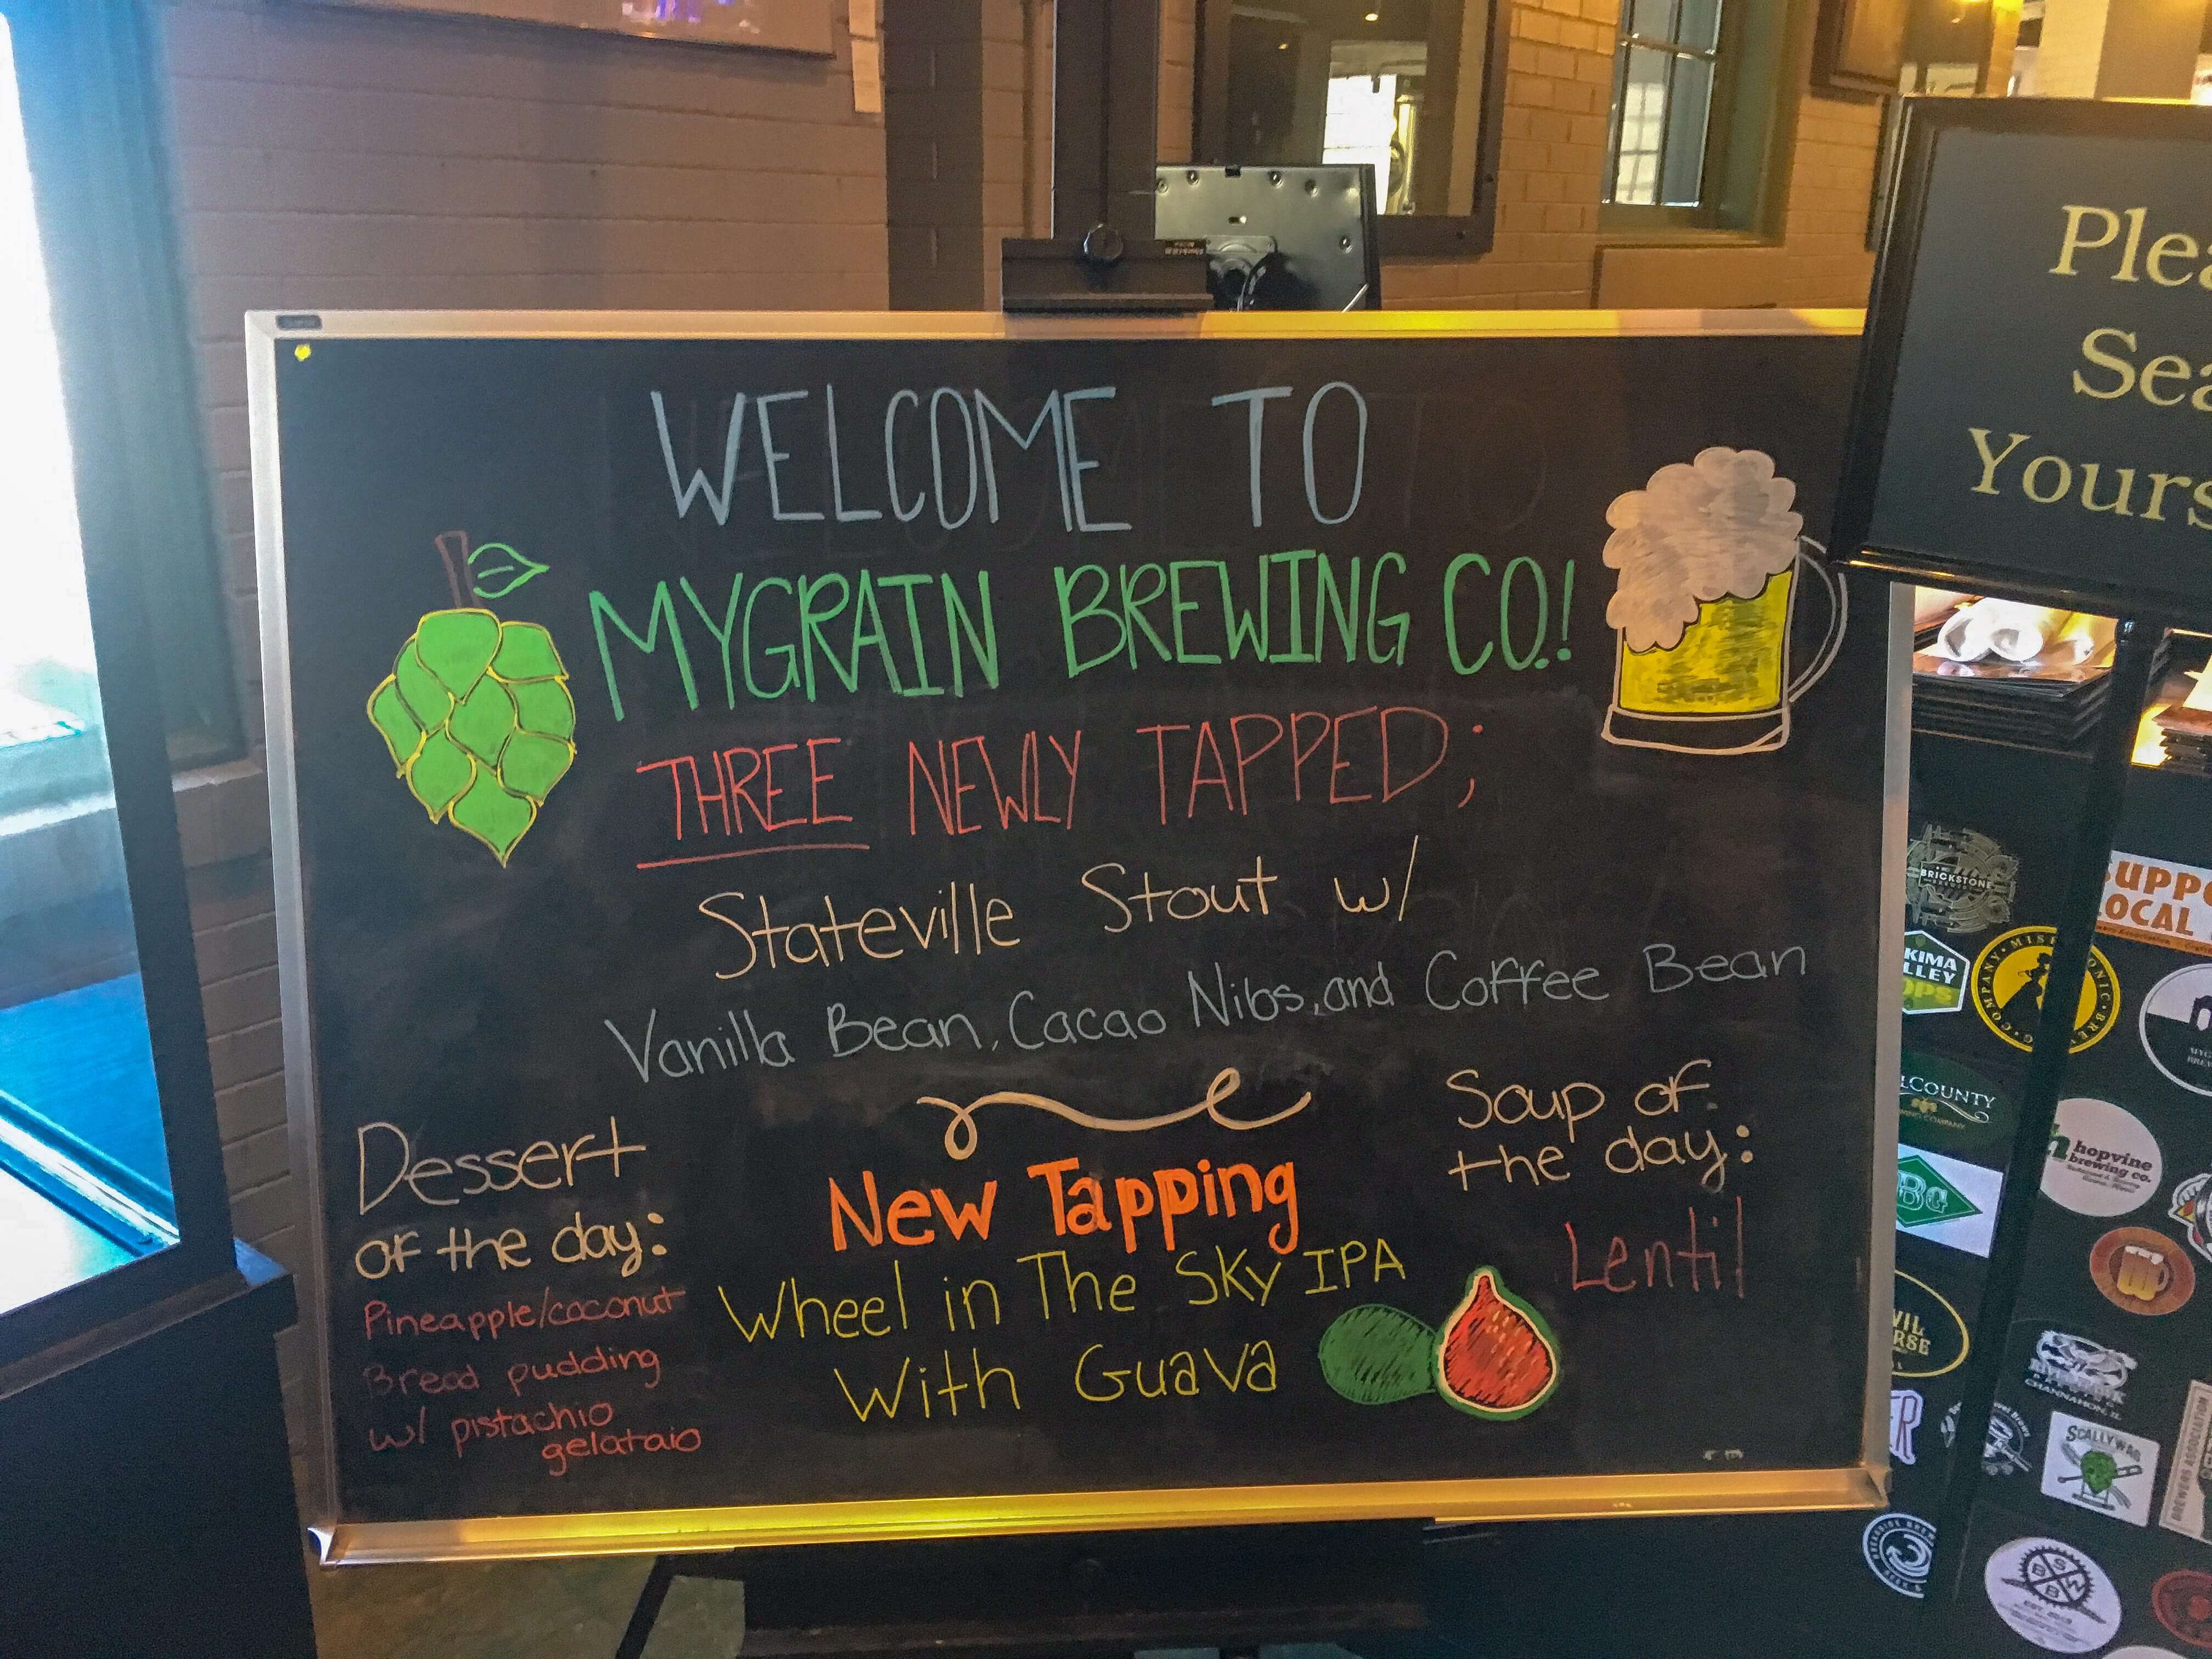 WELCOME TO
MYGRAIN BREWING CO.!
THREE NEWLY TAPPED;
Stateville Stout w/
Vanilla Bean, Cacao Nibs, and Coffee Bean
Dessert
of the day:
Pineapple/coconut
Bread pudding
w/ pistachio
gelataio
New Tapping
Wheel in The Sky IPA
With Guava
Soup of
the day:
Lentil
Plea
Sea
Yours
BRICKSTONE
SUPPO
LOCAL
KIMA
LLEY
OPS
COMPANY
LCOUNTY
BG
hopvine
brewing co.
CHANNAHON, IL
SCALLYWAG
BREWERS ASSOCIATION
B S W B